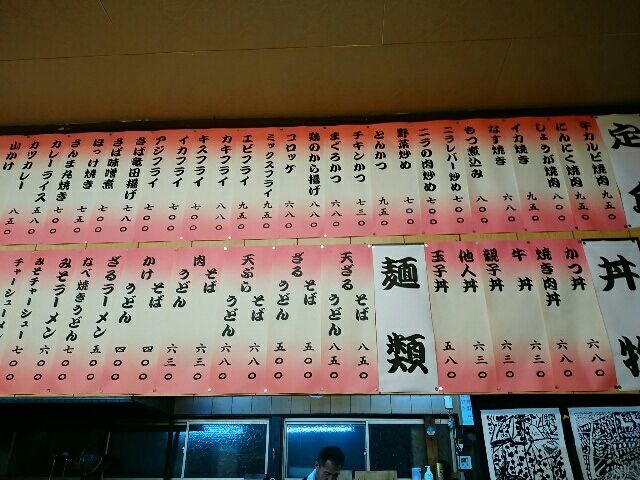 定食
牛カルビ焼肉 九五〇
にんにく焼肉 九五〇
しょうが焼肉 九五〇
イカ焼き 六八〇
なす焼き 七〇〇
もつ煮込み 八〇〇
ニラレバー炒め 七〇〇
ニラの肉炒め 七〇〇
野菜炒め 七〇〇
とんかつ 九五〇
チキンかつ 七三〇
まぐろかつ 八八〇
鶏のから揚げ 八八〇
コロッケ 六八〇
ミックスフライ 九五〇
エビフライ 九五〇
カキフライ 八八〇
キスフライ 八八〇
イカフライ 七〇〇
アジフライ 七〇〇
さば竜田揚げ 七〇〇
さば味噌煮 七八〇
ほっけ焼き 七八〇
さんま丸焼き 七五〇
カレーライス 七五〇
カツカレー 八五〇
山かけ 八五〇
丼物
かつ丼 六八〇
焼き肉丼 六八〇
牛丼 六三〇
親子丼 六三〇
他人丼 六三〇
玉子丼 五八〇
麺類
天ざる そば うどん 八五〇
ざる そば うどん 五五〇
天ぷら そば うどん 六八〇
肉 そば うどん 六三〇
かけ そば うどん 四四〇
ざるラーメン
なべ焼きうどん 七五〇
みそラーメン
みそチャーシュー
チャーシューメン